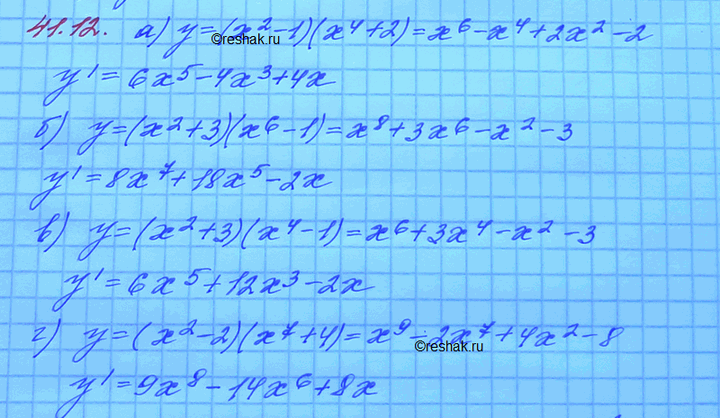 41.12. а) y=(x²-1)(x⁴+2)=x⁶-x⁴+2x²-2
©reshak.ru
y'=6x⁵-4x³+4x
б) y=(x²+3)(x⁶-1)=x⁸+3x⁶-x²-3
y'=8x⁷+18x⁵-2x
в) y=(x²+3)(x⁴-1)=x⁶+3x⁴-x²-3
y'=6x⁵+12x³-2x
г) y=(x²-2)(x⁷+4)=x⁹-2x⁷+4x²-8
©reshak.ru
y'=9x⁸-14x⁶+8x